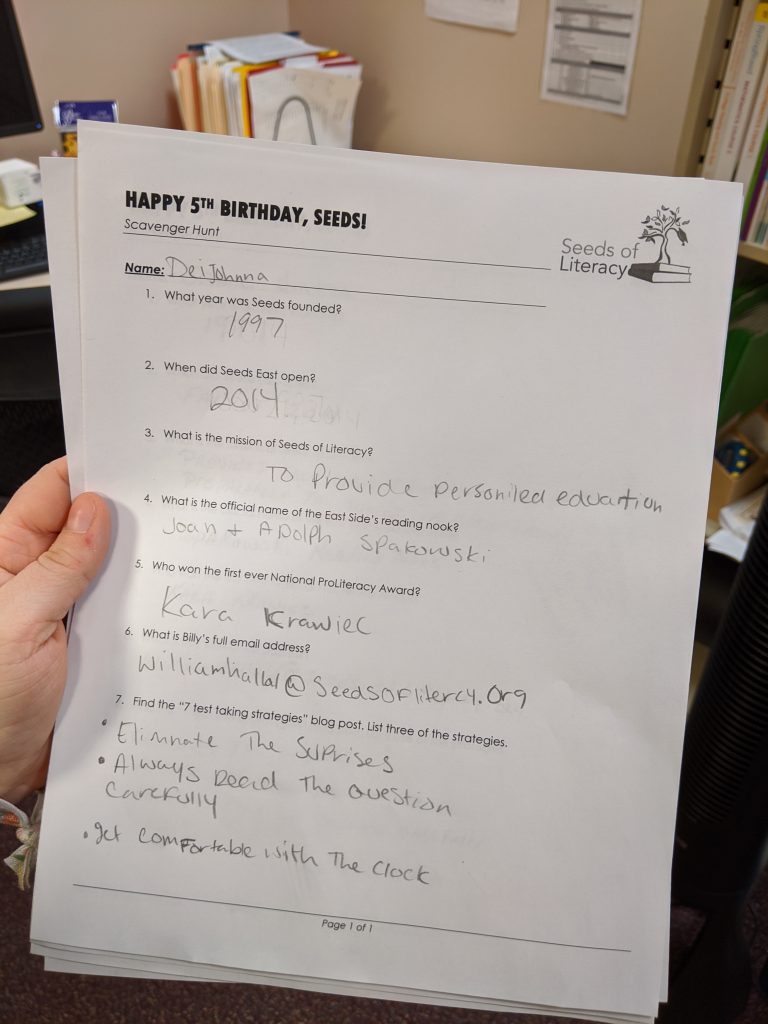 HAPPY 5TH BIRTHDAY, SEEDS!
Scavenger Hunt
Seeds of
Literacy
Name: Deijohnna
1. What year was Seeds founded?
1997
2. When did Seeds East open?
2014
3. What is the mission of Seeds of Literacy?
To Provide personiled eduartion
4. What is the official name of the East Side's reading nook?
Joan + Adolph Spakowski
5. Who won the first ever National ProLiteracy Award?
Kara Krawiec
6. What is Billy's full email address?
Williamhallal@SeedsOFlitercy.Org
7. Find the "7 test taking strategies" blog post. List three of the strategies.
• Elimnate The Suprises
• Always Read The Question
Carefully
• get comfortable with The Clock
Page 1 of 1